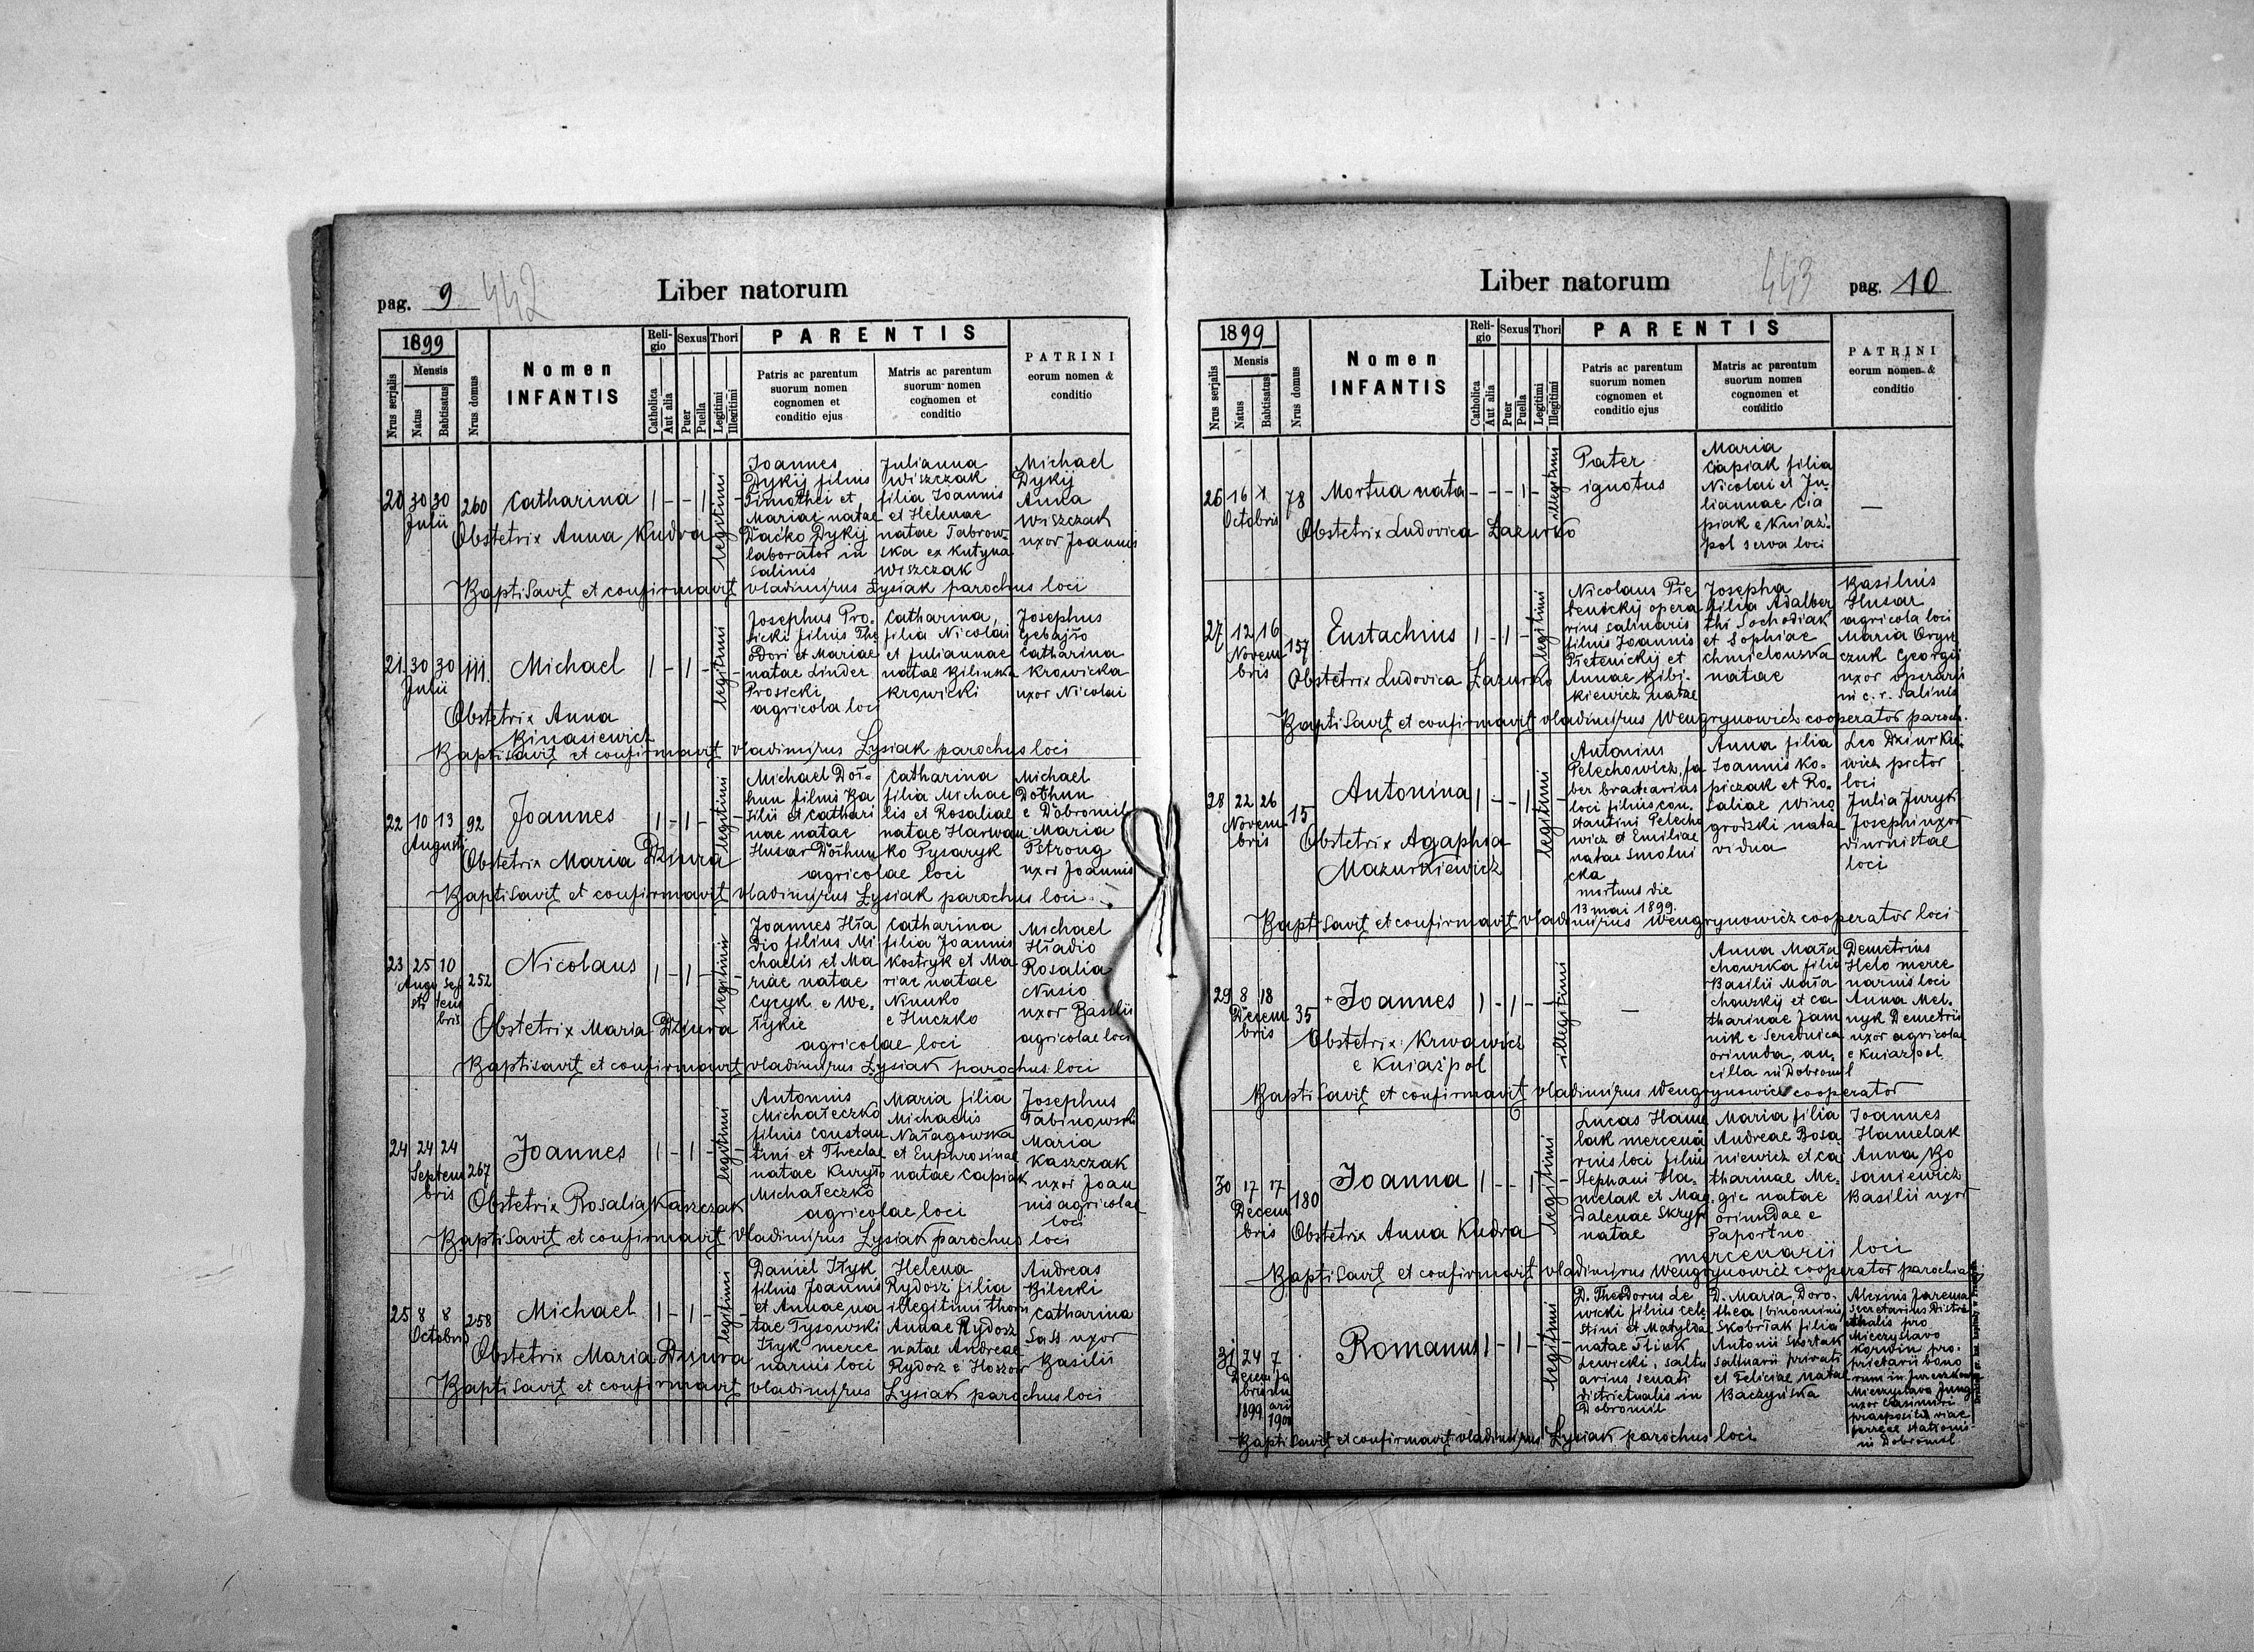 pag. 9 442
Liber natorum
1899
Mensis
Nrus serjalis
Natus
Babtisatus
Nrus domus
Nomen
INFANTIS
Reli-
gio
Sexus
Thori
Catholica
Aut alia
Puer
Puella
Legitimi
Illegitimi
PARENTIS
Patris ac parentum
suorum nomen
cognomen et
conditio ejus
Matris ac parentum
suorum nomen
cognomen et
conditio
PATRINI
eorum nomen &
conditio
20 30 30
Julii
260
Catharina
1 - - 1
legitimi
Obstetrix Anna Kudra
Joannes
Dykij filius
Timothei et
Mariae natae
Daćko Dykij
laborator in
salinis
Julianna
Wiszczak
filia Joannis
et Helenae
natae Tabrow-
ska ex Kutyna
Wiszczak
Michael
Dykij
Anna
Wiszczak
uxor Joannis
Baptisavit et confirmavit Vladimirus Łysiak parochus loci
21 30 30
Julii
111
Michael
1 - 1 -
legitimi
Obstetrix Anna
Binasiewicz
Josephus Pro-
sicki filius The
odori et Mariae
natae Linder
Prosicki
agricola loci
Catharina
filia Nicolai
et Juliannae
natae Bilinska
Krowicki
Josephus
Gebajło
Catharina
Krowicka
uxor Nicolai
Baptisavit et confirmavit Vladimirus Łysiak parochus loci
22 10 13
Augusti
92
Joannes
1 - 1 -
legitimi
Obstetrix Maria Dziura
Michael Doł-
hun filius Ba
silii et Cathari
nae natae
Husar Dołhun
Catharina
filia Michae
lis et Rosaliae
natae Harwan
ko Pysaryk
agricolae loci
Michael
Dołhun
e Dobromil
Maria
Pstrong
uxor Joannis
Baptisavit et confirmavit Vladimirus Łysiak parochus loci
23 25 10
Augu Sep
sti tem
bris
252
Nicolaus
1 - 1 -
legitimi
Obstetrix Maria Dziura
Joannes Hła
dio filius Mi
chaelis et Ma
riae natae
Cycyk e We-
łykie
Catharina
filia Joannis
Kostryk et Ma
riae natae
Ninuko
e Huczko
agricolae loci
Michael
Hładio
Rosalia
Nusio
uxor Basilii
agricolae loci
Baptisavit et confirmavit Vladimirus Łysiak parochus loci
24 24 24
Septem
bris
267
Joannes
1 - 1 -
legitimi
Obstetrix Rosalia Kaszczak
Antonius
Michałeczko
filius Constan
tini et Theclae
natae Kuryło
Michałeczko
Maria filia
Michaelis
Nałagowska
et Euphrosinae
natae Capiak
agricolae loci
Josephus
Tabinowski
Maria
Kaszczak
uxor Joan
nis agricolae
loci
Baptisavit et confirmavit Vladimirus Łysiak parochus loci
25 8 8
Octobris
258
Michael
1 - 1 -
legitimi
Obstetrix Maria Dziura
Daniel Ityk
filius Joannis
et Annae na
tae Tysowski
Ityk merce
narius loci
Helena
Rydosz filia
illegitimi thori
Annae Rydosz
natae Andreae
Rydosz e Hoszow
Andreas
Bilecki
Catharina
Sass uxor
Basilii
Baptisavit et confirmavit Vladimirus Łysiak parochus loci
Liber natorum
443
pag. 10
1899
Mensis
Nrus serjalis
Natus
Babtisatus
Nrus domus
Nomen
INFANTIS
Reli-
gio
Sexus
Thori
Catholica
Aut alia
Puer
Puella
Legitimi
Illegitimi
PARENTIS
Patris ac parentum
suorum nomen
cognomen et
conditio ejus
Matris ac parentum
suorum nomen
cognomen et
conditio
PATRINI
eorum nomen &
conditio
26 16 X
Octobris
78
Mortua nata
- - - 1 -
illegitimi
Obstetrix Ludovica Łazurko
Pater
ignotus
Maria
Ciapiak filia
Nicolai et Ju-
liannae Cia
piak e Kniaź-
pol serva loci
—
27 12 16
Novem
bris
157
Eustachius
1 - 1 -
legitimi
Obstetrix Ludovica Łazurko
Nicolaus Pie
tenickij opera
rius salinaris
filius Joannis
Pietenickij et
Annae Bibi-
kiewicz natae
Josepha
filia Adalber
thi Sochodiak
et Sophiae
Chmielowska
natae
Basilius
Husar
agricola loci
Maria Oryn
czuk Georgii
uxor operarii
in c. r. salinis
Baptisavit et confirmavit Vladimirus Wengrynowicz cooperator paroch.
28 22 26
Novem
bris
15
Antonina
1 - - 1
legitimi
Obstetrix Agaphia
Mazurkiewicz
Antonius
Pelechowicz, fa
ber bractearius
loci filius con-
stantini Pelecho
wicz et Emiliae
natae Smolni
cka
mortuus die
13 mai 1899.
Anna filia
Joannis Ko-
piczak et Ro-
saliae Wino
grodzki natae
vidua
Leo Dziurkie-
wicz pictor
loci
Julia Juryk
Josephi uxor
diurnistae
loci
Baptisavit et confirmavit Vladimirus Wengrynowicz cooperator loci
29 8 18
Decem
bris
35
+ Joannes
1 - 1 -
illegitimi
Obstetrix: Krwawicz
e Kniaźpol
—
Anna Mała
chowska filia
Basilii Mała
chowskij et Ca
tharinae Jam
nik e Serednica
oriunda, an-
cilla in Dobromil
Demetrius
Helo merce
narius loci
Anna Mel-
nyk Demetrii
uxor agricolae
e Kniaźpol
Baptisavit et confirmavit Vladimirus Wengrynowicz cooperator
30 17 17
Decem
bris
180
Joanna
1 - - 1
legitimi
Obstetrix Anna Kudra
Lucas Hame
lak mercena
rius loci filius
Stephani Ha-
melak et Mag
dalenae Skryp
natae
Maria filia
Andreae Bosa
niewicz et Ca
tharinae Me-
gic natae
oriundae e
Paportno
mercenarii loci
Joannes
Hamelak
Anna Bo
saniewicz
Basilii uxor
Baptisavit et confirmavit Vladimirus Wengrynowicz cooperator parochiae
31 24 7
Decem Ja
bris nu
1899 arii
1900
Romanus
1 - 1 -
legitimi
D. Theodorus Le
wicki filius Cele
stini et Matylda
natae Tliuk
Lewicki, saltu
arius senati
districtualis in
Dobromil
D. Maria, Doro-
thea (binominis)
Skobriak filia
Antonii Skortak
saltuarii privati
et Feliciae natae
Baczyńska
Alexius Jarema
secretarius distri
cthalis pro
Mieczyslavo
Korwin pro-
prietarii bono
rum in
Mieczyslava Jung
uxor Casimiri
praepositi viae
ferreae stationis
in Dobromil
Baptisavit et confirmavit Vladimirus Łysiak parochus loci